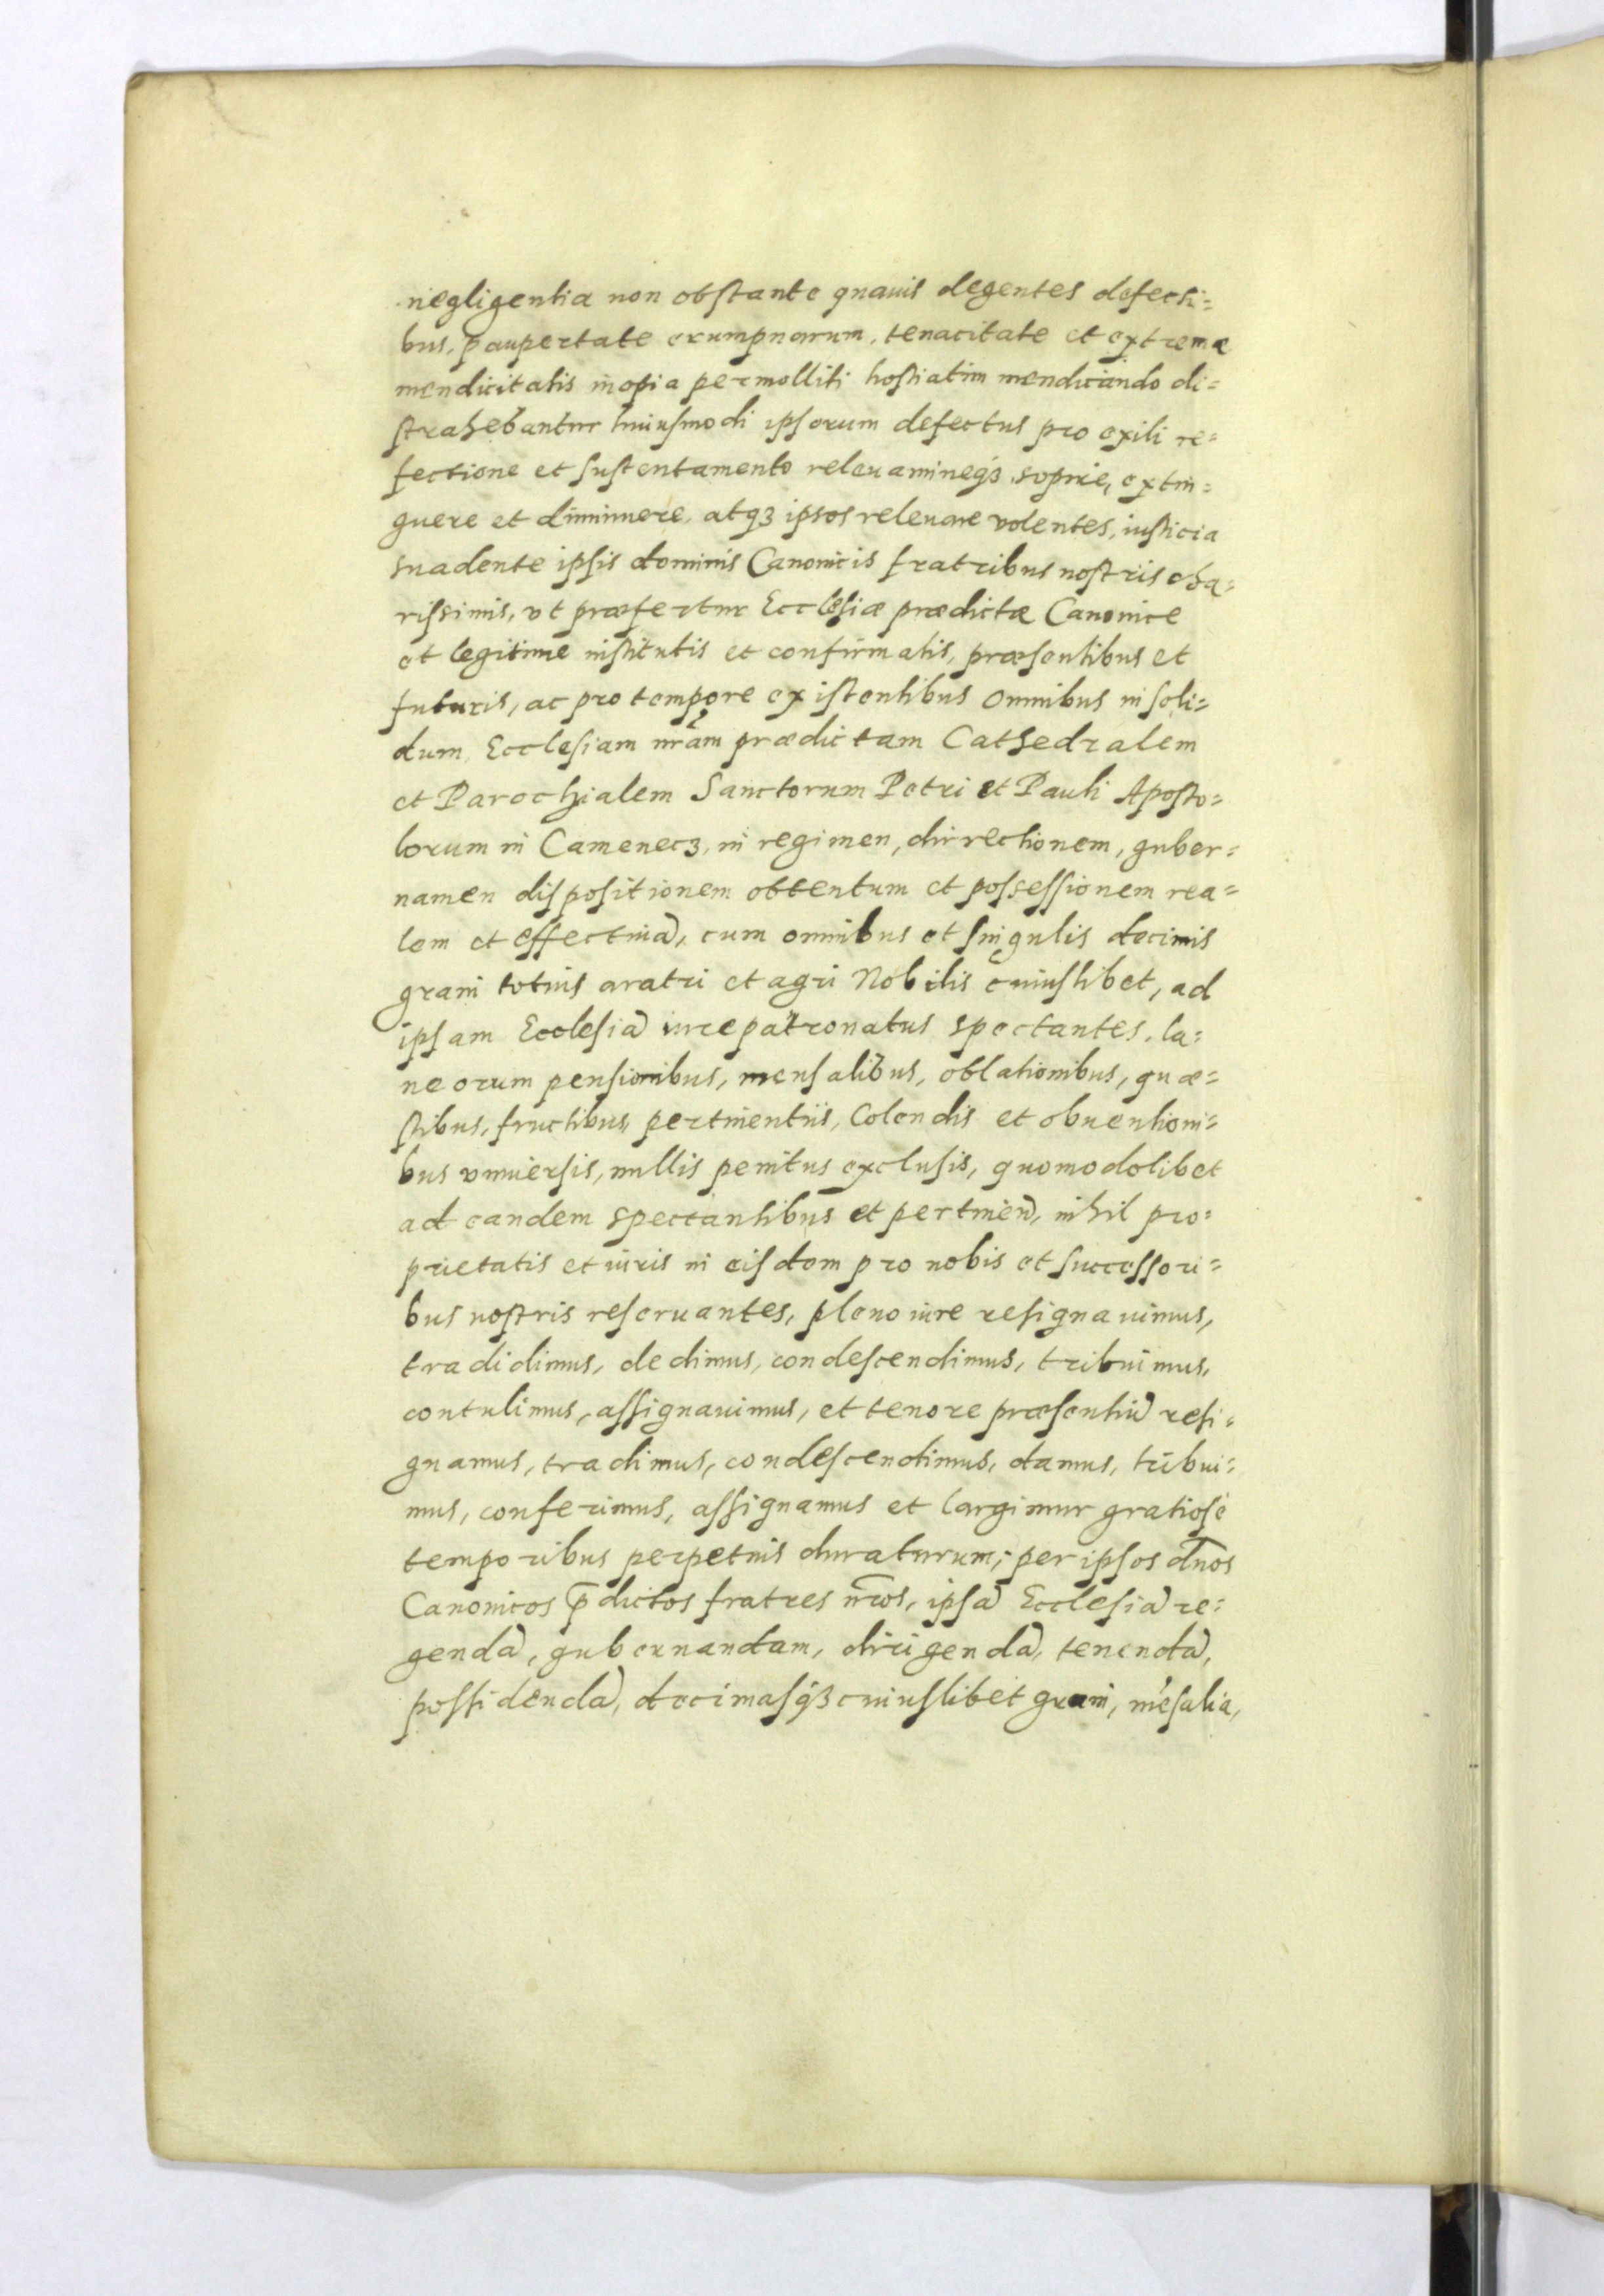 negligentia non obstante quauis degentes defecti=
bus, paupertate erumpnarum, tenacitate et extremæ
mendicitatis inopia permolliti hostiatim mendicando di=
strahebantur huiusmodi ipsorum defectus pro exili re=
fectione et sustentamento releuamineqʒ sopire, extin=
guere et diminuere, atqʒ ipsos releuare volentes, iusticia
suadente ipsis dominis Canonicis fratribus nostris cha=
rissimis, vt præfertur Ecclesiæ prædictæ Canonice
et legitime institutis et confirmatis, præsentibus et
futuris, ac pro tempore existentibus omnibus in soli=
dum, Ecclesiam nr̃am prædictam Cathedralem
et Parochialem Sanctorum Petri et Pauli Aposto=
lorum in Camenecz, in regimen, dirrectionem, guber=
namen dispositionem obtentum et possessionem rea=
lem et effectiuã, cum omnibus et singulis decimis
grani totius aratri et agri Nobilis cuiuslibet, ad
ipsam Ecclesiã iure patronatus spectantes, la=
neorum pensionibus, mensalibus, oblationibus, quæ=
stibus, fructibus, pertinentiis, Colendis et obuentioni=
bus vniuersis, nullis penitus exclusis, quomodolibet
ad eandem spectantibus et pertineñ, nihil pro=
prietatis et iuris in eisdem pro nobis et successori=
bus nostris reseruantes, pleno iure resignauimus,
tradidimus, dedimus, condescendimus, tribuimus,
contulimus, assignauimus, et tenore præsentiũ resi=
gnamus, tradimus, condescendimus, damus, tribui=
mus, conferimus, assignamus et largimur gratiose
temporibus perpetuis duraturum; per ipsos dn̄os
Canonicos p̄dictos fratres nr̄os, ipsã Ecclesiã re=
gendã, gubernandam, dirigendã, tenendã,
possidendã, decimasqʒ cuiuslibet grani, mẽsalia,